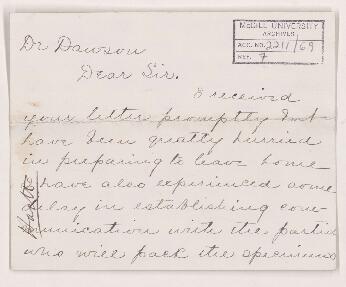 McGILL UNIVERSITY
ARCHIVES
ACC. NO. 2211/69
REF. 7
Dr Dawson
Dear Sir.
I received
your letter promptly but
have been greatly hurried
in preparing to leave home
I have also experienced some
delay in establishing com-
munication with the parties
who will pack the specimens